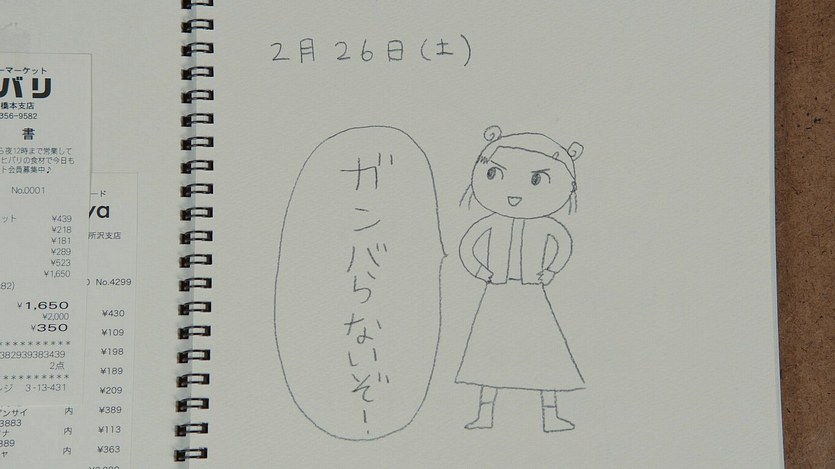 ーマーケット
バリ
橋本支店
356-9582
書
ら夜12時まで営業して
ヒバリの食材で今日も
ト会員募集中♪
No.0001
ット ¥439
¥218
¥181
¥289
¥523
¥1,650
¥1,650
¥2,000
¥350
**********
382939383439
2点
**********
レジ 3-13-431
ンサイ 内 ¥389
3883
ナ 内 ¥113
389
ャ 内 ¥363
ード
ya
所沢支店
No.4299
¥430
¥109
¥198
¥189
¥209
2月26日(土)
ガンバらないぞー!